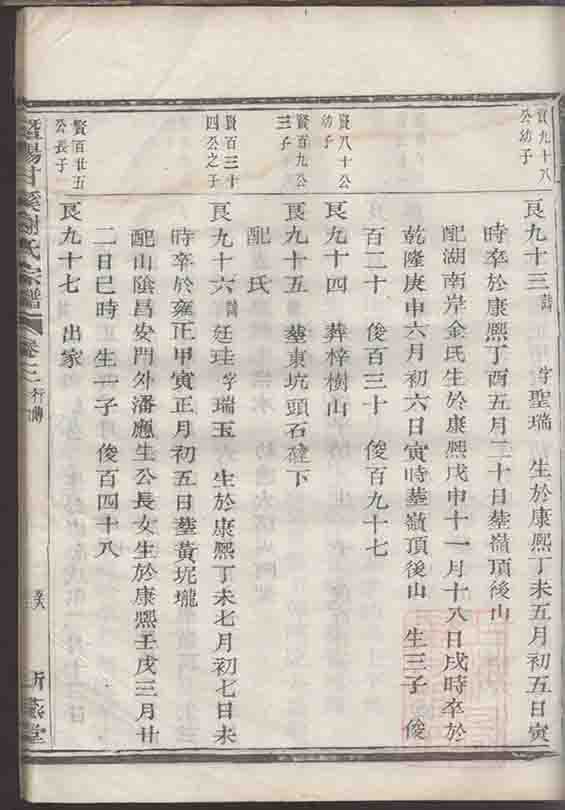 賢九十八
公幼子
良九十三 諱 字聖瑞 生於康熙丁未五月初五日寅
時卒於康熙丁酉五月二十日塟嶺頂後山
配湖南岸金氏生於康熙戊申十一月十八日戌時卒於
乾隆庚申六月初六日寅時塟嶺頂後山 生三子 俊
百二十 俊百三十 俊百九十七
賢八十公
幼子
良九十四 葬梓樹山
賢百九公
三子
良九十五 塟東坑頭石䃮下
配 氏
賢百三十
四公之子
良九十六 諱廷珪 字瑞玉 生於康熙丁未七月初七日未
時卒於雍正甲寅正月初五日塟黃坭壠
配山陰昌安門外潘應生公長女生於康熙壬戌三月廿
二日巳時 生一子 俊百四十八
賢百廿五
公長子
良九十七 出家
暨陽甘溪謝氏宗譜 卷二 行傳